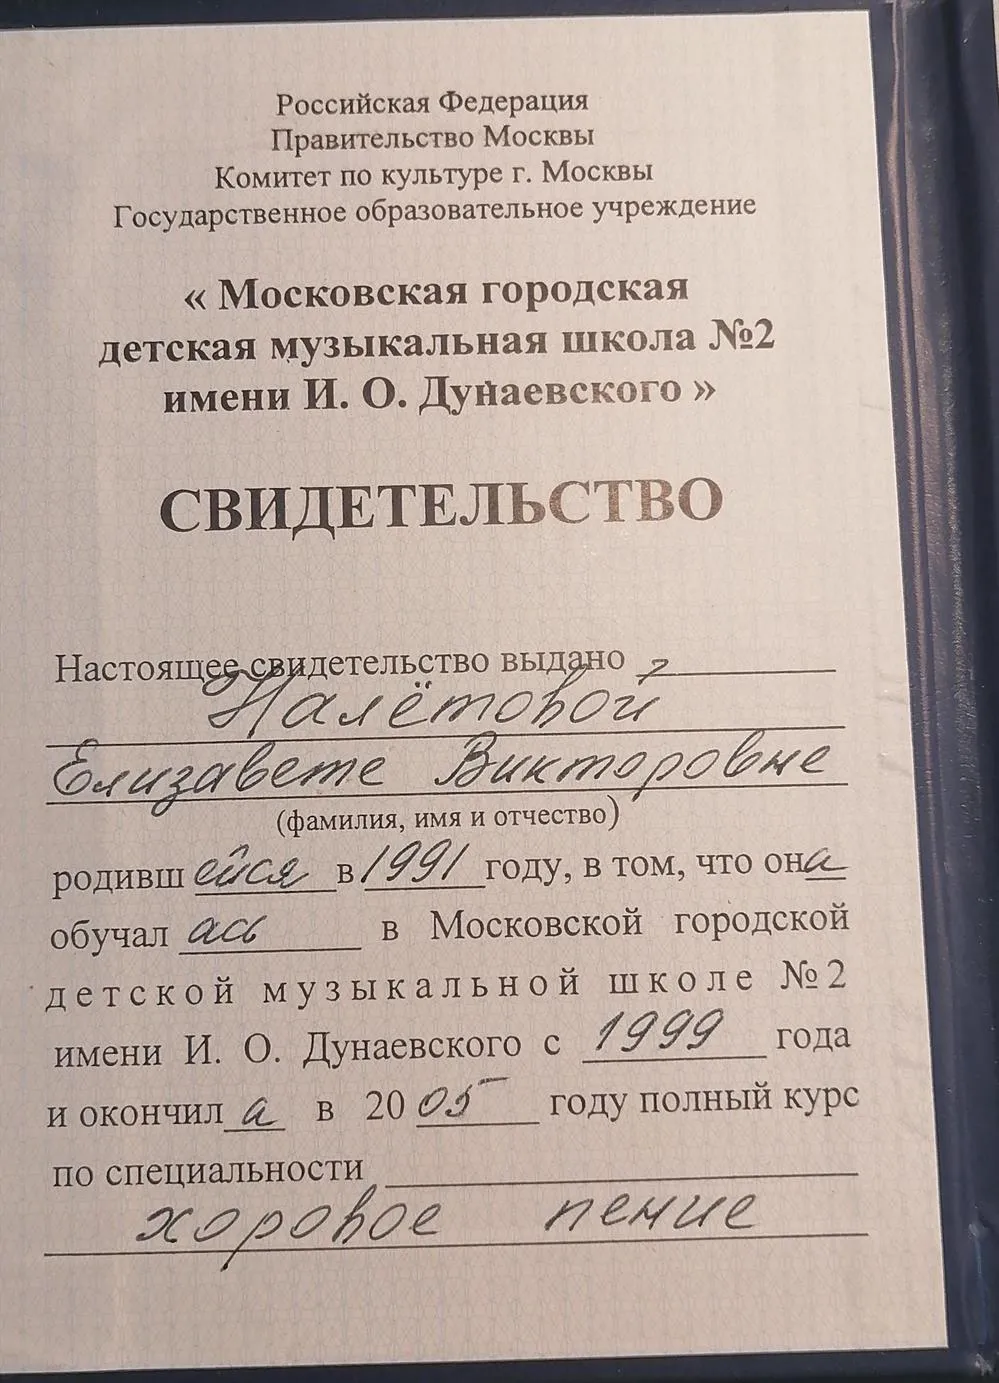 Российская Федерация
Правительство Москвы
Комитет по культуре г. Москвы
Государственное образовательное учреждение
« Московская городская
детская музыкальная школа №2
имени И. О. Дунаевского »
СВИДЕТЕЛЬСТВО
Настоящее свидетельство выдано
Налётовой
Елизавете Викторовне
(фамилия, имя и отчество)
родившейся в 1991 году, в том, что она
обучалась в Московской городской
детской музыкальной школе №2
имени И. О. Дунаевского с 1999 года
и окончила в 2005 году полный курс
по специальности
хоровое пение